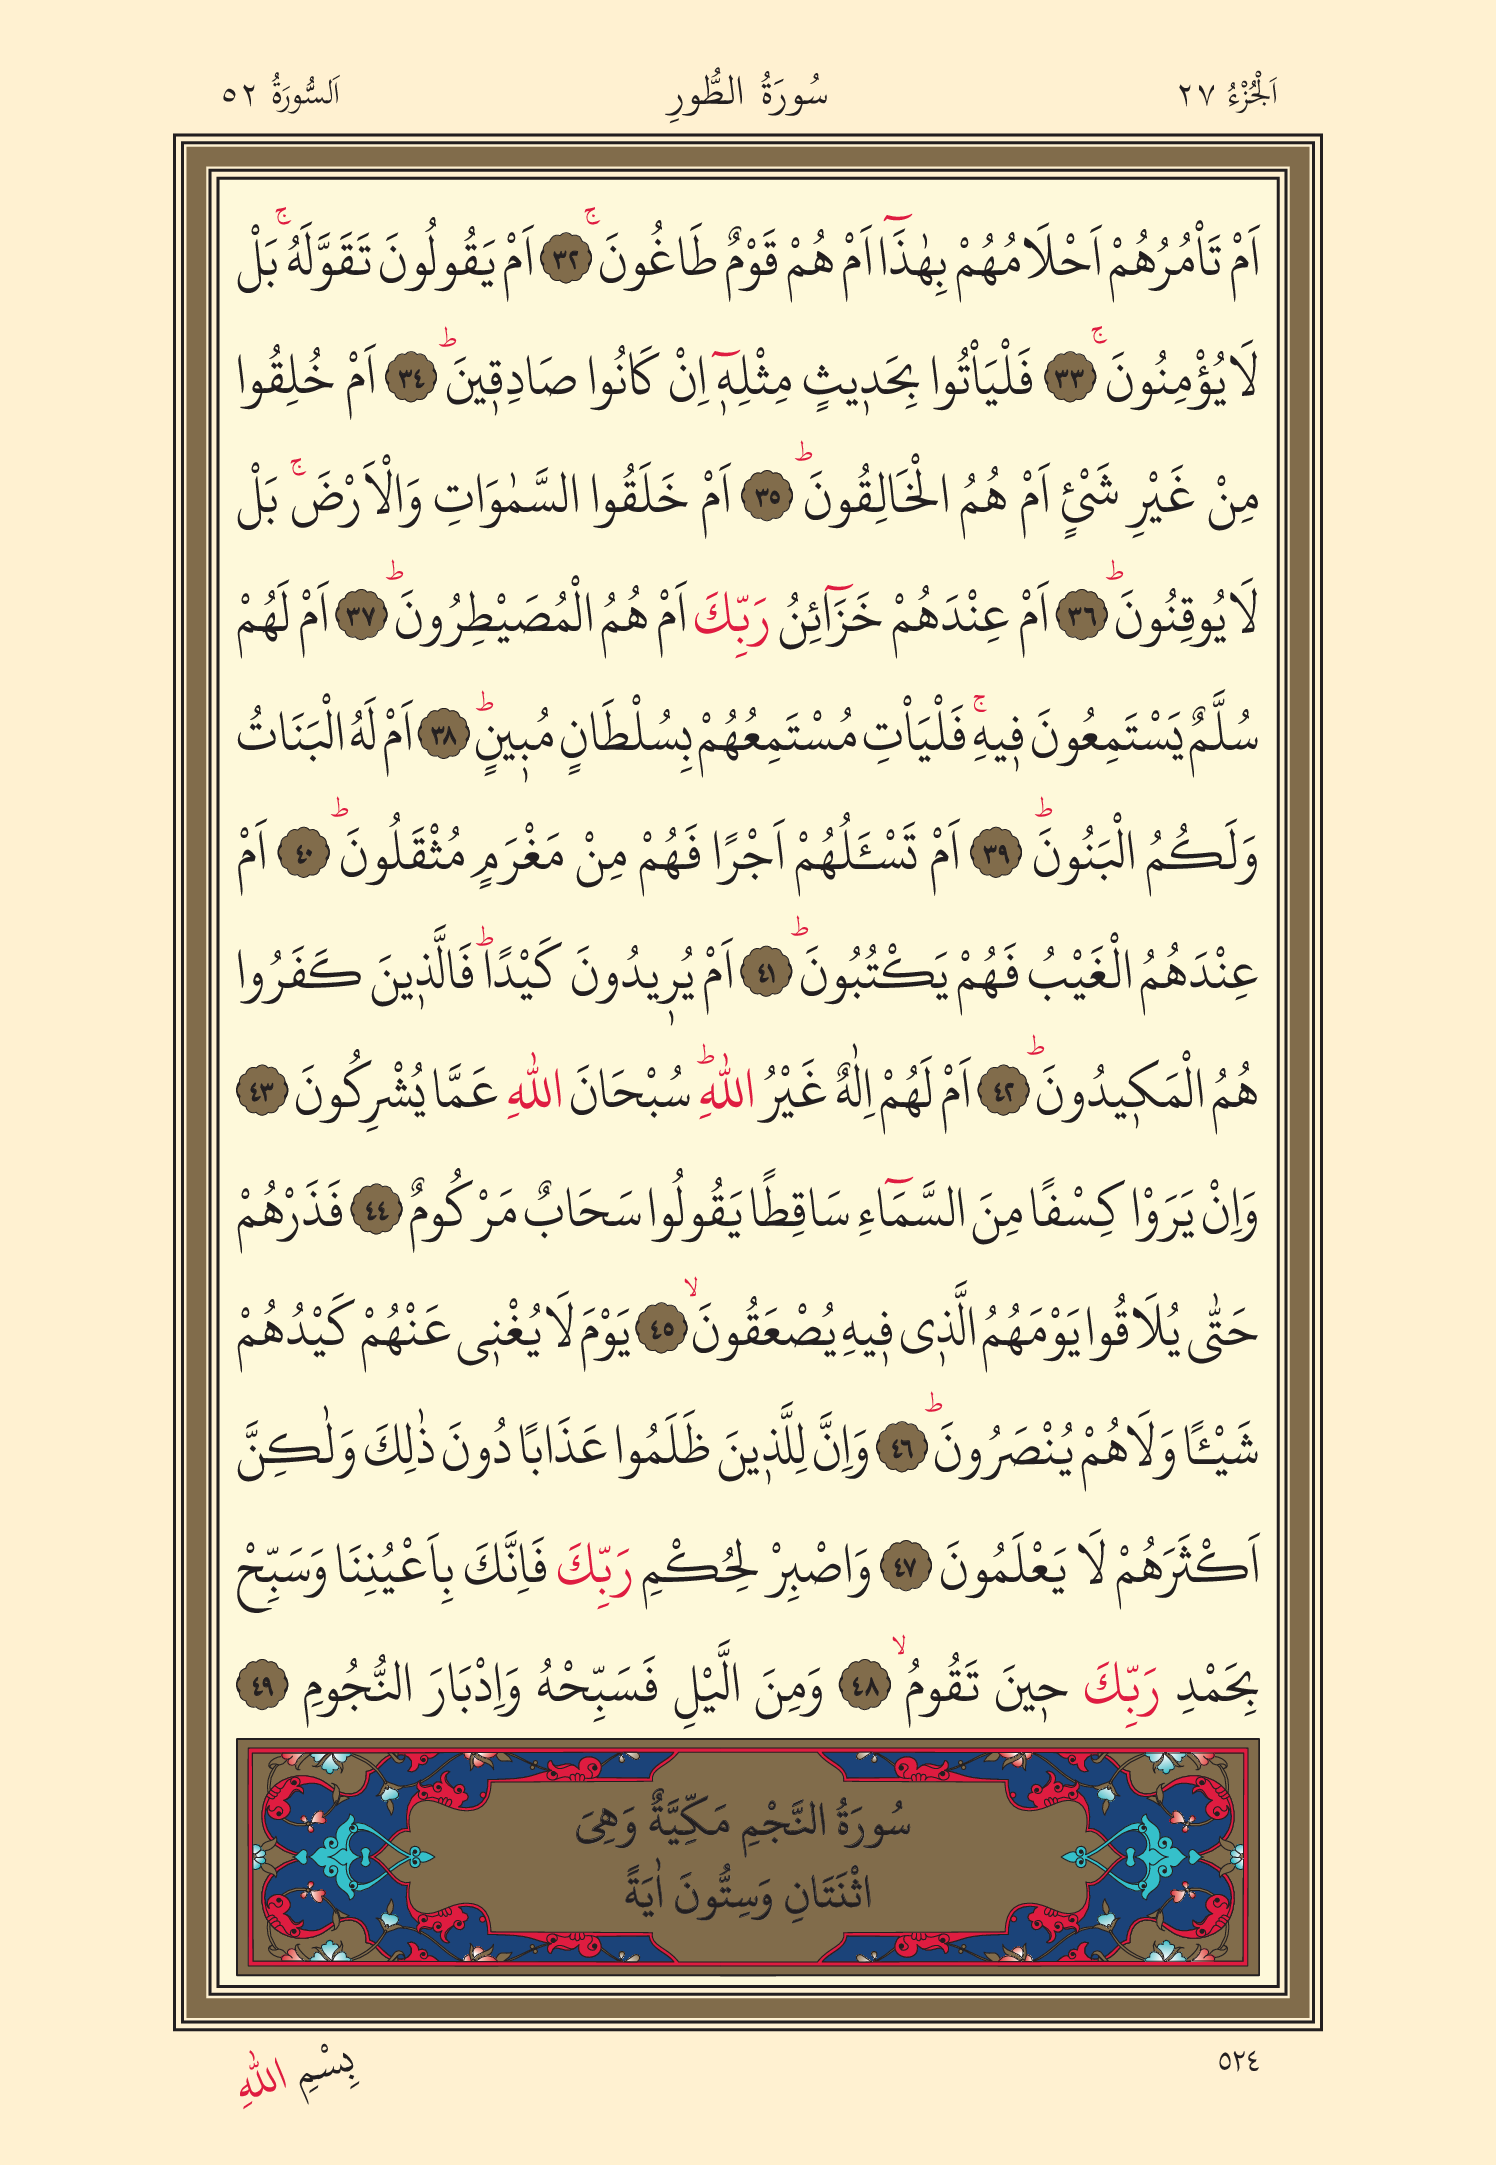 اَلْجُزْءُ ٢٧ سُورَةُ الطُّورِ اَلسُّورَةُ ٥٢
اَمْ تَأْمُرُهُمْ اَحْلَامُهُمْ بِهٰذَٓا اَمْ هُمْ قَوْمٌ طَاغُونَۚ ﴿٣٢﴾ اَمْ يَقُولُونَ تَقَوَّلَهُۚ بَلْ
لَا يُؤْمِنُونَۚ ﴿٣٣﴾ فَلْيَأْتُوا بِحَد۪يثٍ مِثْلِه۪ٓ اِنْ كَانُوا صَادِق۪ينَۜ ﴿٣٤﴾ اَمْ خُلِقُوا
مِنْ غَيْرِ شَيْءٍ اَمْ هُمُ الْخَالِقُونَۜ ﴿٣٥﴾ اَمْ خَلَقُوا السَّمٰوَاتِ وَالْاَرْضَۚ بَلْ
لَا يُوقِنُونَۜ ﴿٣٦﴾ اَمْ عِنْدَهُمْ خَزَٓائِنُ رَبِّكَ اَمْ هُمُ الْمُصَيْطِرُونَۜ ﴿٣٧﴾ اَمْ لَهُمْ
سُلَّمٌ يَسْتَمِعُونَ ف۪يهِۚ فَلْيَأْتِ مُسْتَمِعُهُمْ بِسُلْطَانٍ مُب۪ينٍۜ ﴿٣٨﴾ اَمْ لَهُ الْبَنَاتُ
وَلَكُمُ الْبَنُونَۜ ﴿٣٩﴾ اَمْ تَسْـَٔلُهُمْ اَجْرًا فَهُمْ مِنْ مَغْرَمٍ مُثْقَلُونَۜ ﴿٤٠﴾ اَمْ
عِنْدَهُمُ الْغَيْبُ فَهُمْ يَكْتُبُونَۜ ﴿٤١﴾ اَمْ يُر۪يدُونَ كَيْدًاۜ فَالَّذ۪ينَ كَفَرُوا
هُمُ الْمَك۪يدُونَۜ ﴿٤٢﴾ اَمْ لَهُمْ اِلٰهٌ غَيْرُ اللّٰهِۜ سُبْحَانَ اللّٰهِ عَمَّا يُشْرِكُونَ ﴿٤٣﴾
وَاِنْ يَرَوْا كِسْفًا مِنَ السَّمَٓاءِ سَاقِطًا يَقُولُوا سَحَابٌ مَرْكُومٌ ﴿٤٤﴾ فَذَرْهُمْ
حَتّٰى يُلَاقُوا يَوْمَهُمُ الَّذ۪ى ف۪يهِ يُصْعَقُونَۙ ﴿٤٥﴾ يَوْمَ لَا يُغْن۪ى عَنْهُمْ كَيْدُهُمْ
شَيْـًٔا وَلَاهُمْ يُنْصَرُونَۜ ﴿٤٦﴾ وَاِنَّ لِلَّذ۪ينَ ظَلَمُوا عَذَابًا دُونَ ذٰلِكَ وَلٰكِنَّ
اَكْثَرَهُمْ لَا يَعْلَمُونَ ﴿٤٧﴾ وَاصْبِرْ لِحُكْمِ رَبِّكَ فَاِنَّكَ بِاَعْيُنِنَا وَسَبِّحْ
بِحَمْدِ رَبِّكَ ح۪ينَ تَقُومُۙ ﴿٤٨﴾ وَمِنَ الَّيْلِ فَسَبِّحْهُ وَاِدْبَارَ النُّجُومِ ﴿٤٩﴾
سُورَةُ النَّجْمِ مَكِّيَّةٌ وَهِىَ
اثْنَتَانِ وَسِتُّونَ اٰيَةً
٥٢٤ بِسْمِ اللّٰهِ